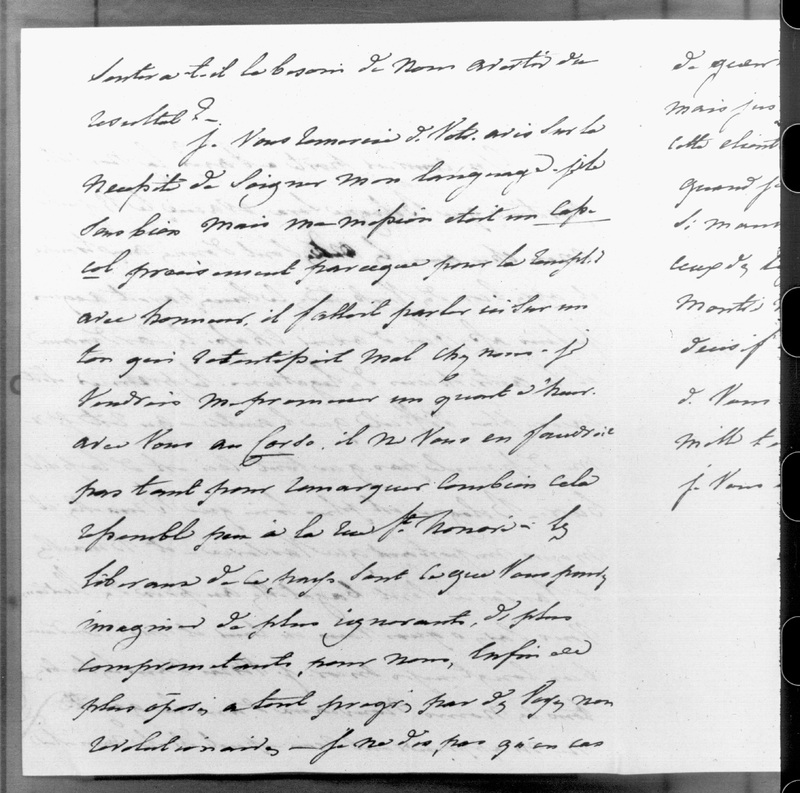 Sentira-t-il le besoin de nous avertir du
resultat?—
je vous remercie d. Votr. avis sur la
necessité de soigner mon language. je le
sais bien mais ma mission etoit un cap-
col precisement parceque pour la rempl.r
avec honneur, il falloit parler ici sur un
ton qui retentissoit mal chez nous. je
voudrois me promener un quart d'heur.
avec vous au Corso. il ne vous en faudroit
pas tant pour remarquer combien cela
ressemble peu à la rue St. honoré. les
liberaux de ce pays sont ce que vous pouvez
imaginer de plus ignorants, de plus
compromettants, pour nous, enfin de
plus oposés a tout progrès par des voyes non
revolutionaires — je ne dis pas qu'en cas
de guerr
mais jus
cette client
quand je
si mau
ceux des
Montr
decisif
d. Vous
mille t
je vous